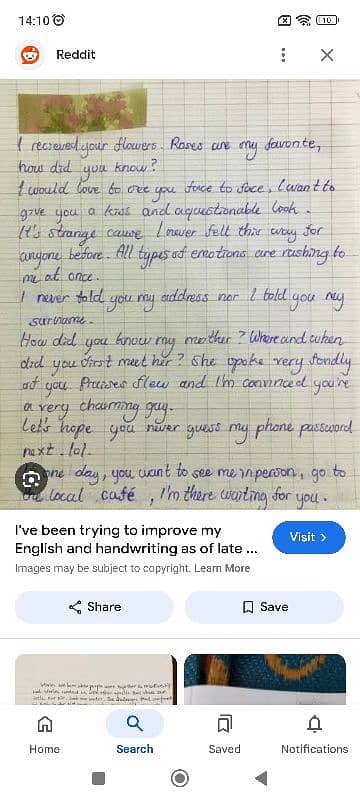 14:10
10
Reddit
I recieved your flowers. Roses are my favorite,
how did you know?
I would love to see you face to face, I want to
give you a kiss and a questionable look.
It's strange cause I never fell this way for
anyone before. All types of emotions are rushing to
me at once.
I never told you my address nor I told you my
surname.
How did you know my mother? Where and when
did you first meet her? She spoke very fondly
of you. Praises flew and I'm convinced you're
a very charming guy.
Let's hope you never guess my phone password
next. lol.
one day, you want to see me in person, go to
local café, I'm there waiting for you.
I've been trying to improve my
English and handwriting as of late ...
Visit >
Images may be subject to copyright. Learn More
Share
Save
Home
Search
Saved
Notifications